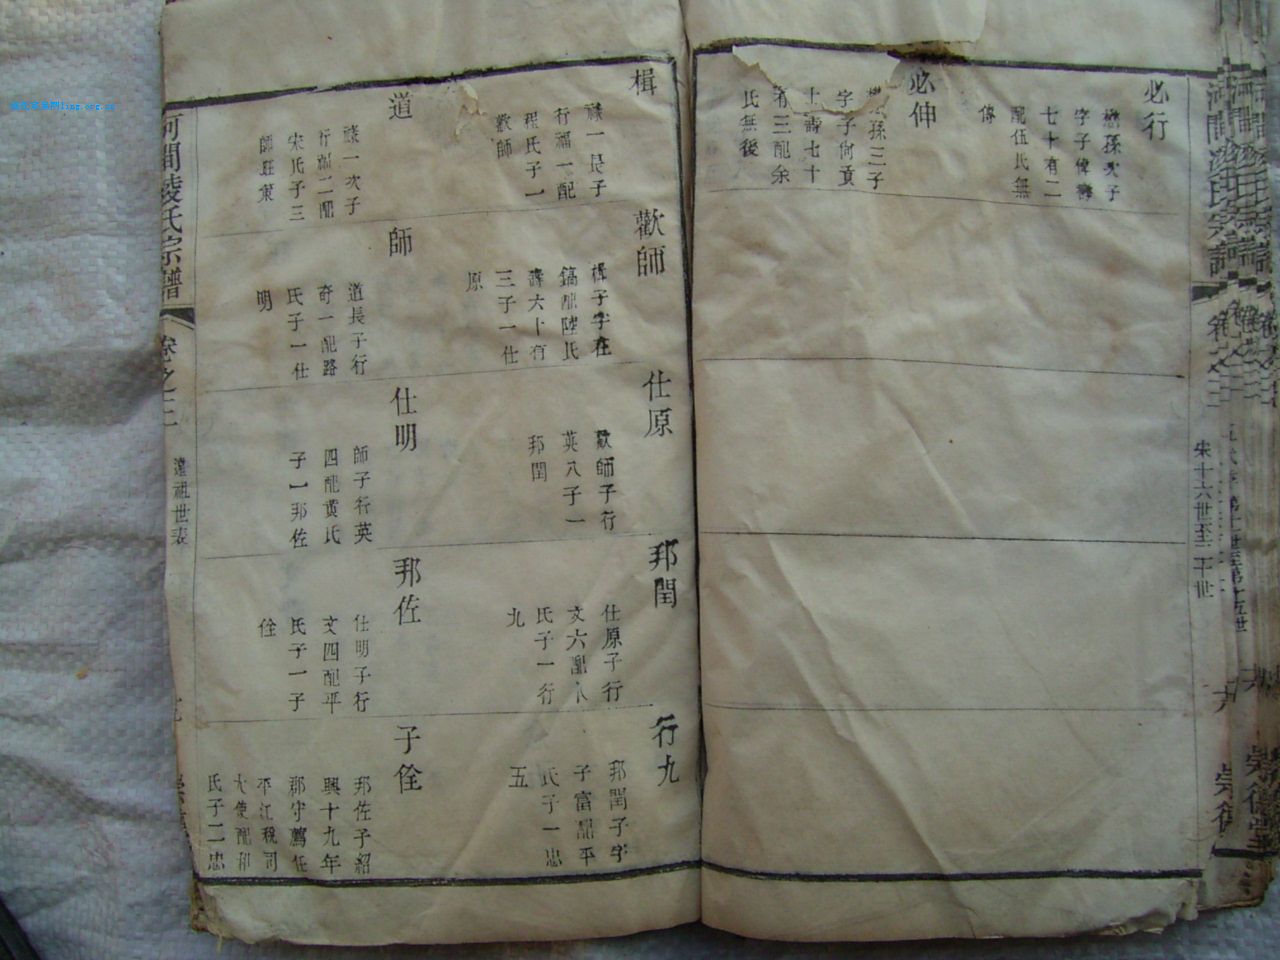 必行
孫次子
字子偉壽
七十有二
配伍氏無
傳
必伸
孫三子
字子何貢
士壽七十
有三配余
氏無後
宋十六世至二十世
楫
祿一長子
行福一配
程氏子一
歡師
歡師
楫子字在
鎬配陸氏
壽六十有
三子一仕
原
仕原
歡師子行
英八子一
邦閏
邦閏
仕原子行
文六配
氏子一行
九
行九
邦閏子字
子富配平
氏子一忠
五
道
祿一次子
行福二配
宋氏子三
師旺
師
道長子行
奇一配路
氏子一仕
明
仕明
師子行英
四配黄氏
子一邦佐
邦佐
仕明子行
文四配平
氏子一子
佺
子佺
邦佐子紹
興十九年
郡守薦任
平江稅司
大使配和
氏子二忠
河間凌氏宗譜
卷之二
遠祖世表
河間凌氏宗譜